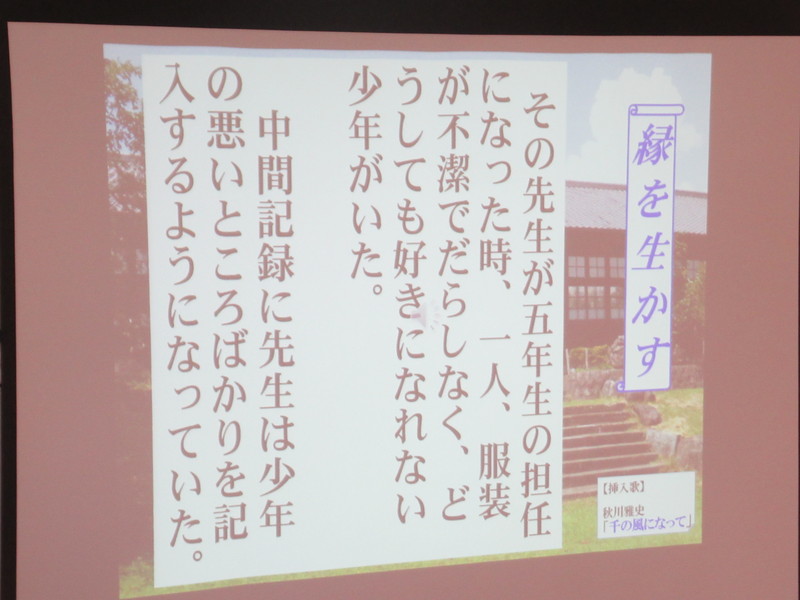 縁を生かす
その先生が五年生の担任
になった時、一人、服装
が不潔でだらしなく、ど
うしても好きになれない
少年がいた。
中間記録に先生は少年
の悪いところばかりを記
入するようになっていた。
【挿入歌】
秋川雅史
「千の風になって」